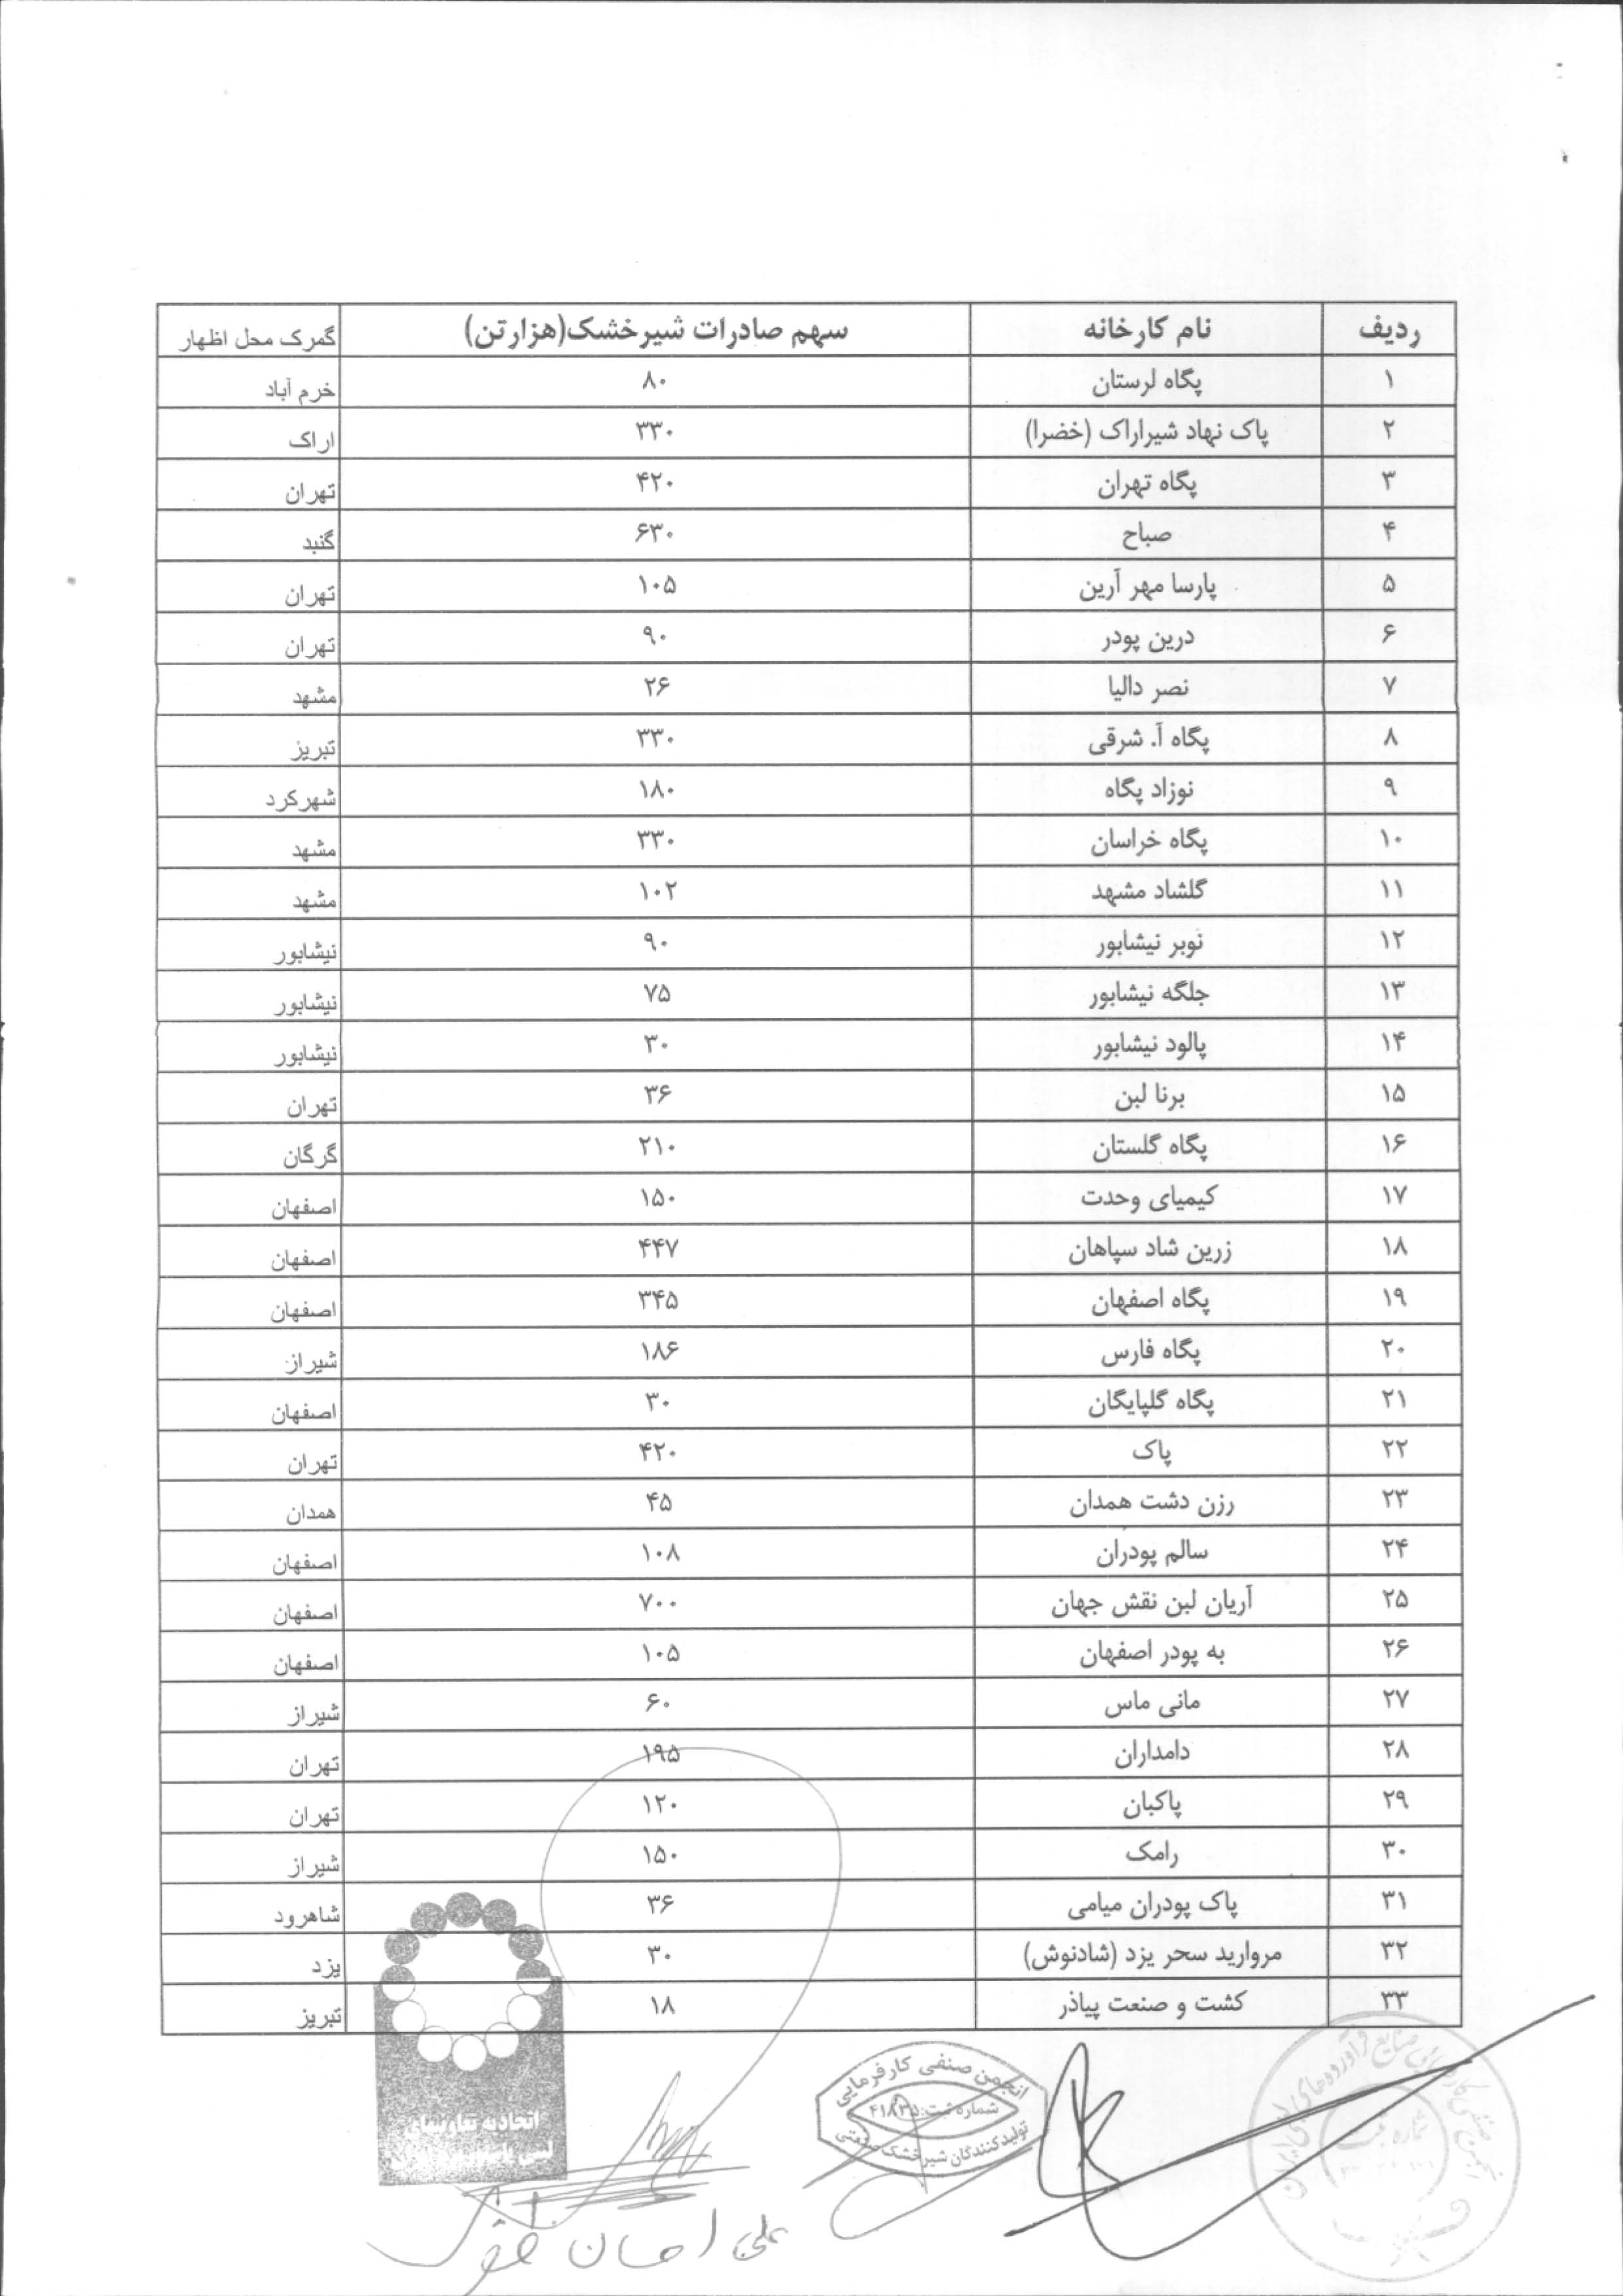 ردیف نام کارخانه سهم صادرات شیرخشک(هزارتن) گمرک محل اظهار
۱ پگاه لرستان ۸۰ خرم آباد
۲ پاک نهاد شیراراک (خضرا) ۳۳۰ اراک
۳ پگاه تهران ۴۲۰ تهران
۴ صباح ۶۳۰ گنبد
۵ پارسا مهر آرین ۱۰۵ تهران
۶ درین پودر ۹۰ تهران
۷ نصر دالیا ۲۶ مشهد
۸ پگاه آ. شرقی ۳۳۰ تبریز
۹ نوزاد پگاه ۱۸۰ شهرکرد
۱۰ پگاه خراسان ۳۳۰ مشهد
۱۱ گلشاد مشهد ۱۰۲ مشهد
۱۲ نوبر نیشابور ۹۰ نیشابور
۱۳ جلگه نیشابور ۷۵ نیشابور
۱۴ پالود نیشابور ۳۰ نیشابور
۱۵ برنا لبن ۳۶ تهران
۱۶ پگاه گلستان ۲۱۰ گرگان
۱۷ کیمیای وحدت ۱۵۰ اصفهان
۱۸ زرین شاد سپاهان ۴۴۷ اصفهان
۱۹ پگاه اصفهان ۳۴۵ اصفهان
۲۰ پگاه فارس ۱۸۶ شیراز
۲۱ پگاه گلپایگان ۳۰ اصفهان
۲۲ پاک ۴۲۰ تهران
۲۳ رزن دشت همدان ۴۵ همدان
۲۴ سالم پودران ۱۰۸ اصفهان
۲۵ آریان لبن نقش جهان ۷۰۰ اصفهان
۲۶ به پودر اصفهان ۱۰۵ اصفهان
۲۷ مانی ماس ۶۰ شیراز
۲۸ دامداران ۱۹۵ تهران
۲۹ پاکبان ۱۲۰ تهران
۳۰ رامک ۱۵۰ شیراز
۳۱ پاک پودران میامی ۳۶ شاهرود
۳۲ مروارید سحر یزد (شادنوش) ۳۰ یزد
۳۳ کشت و صنعت پیاذر ۱۸ تبریز
انجمن صنفی کارفرمایی
شماره ثبت:
تولیدکنندگان شیرخشک صنعتی
اتحادیه تعاونیهای
علی احسان